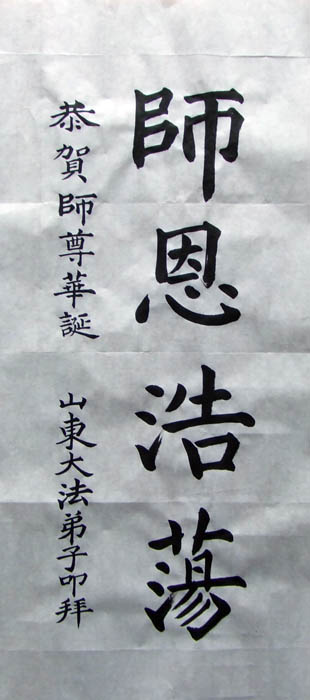 師恩浩蕩
恭賀師尊華誕
山東大法弟子叩拜